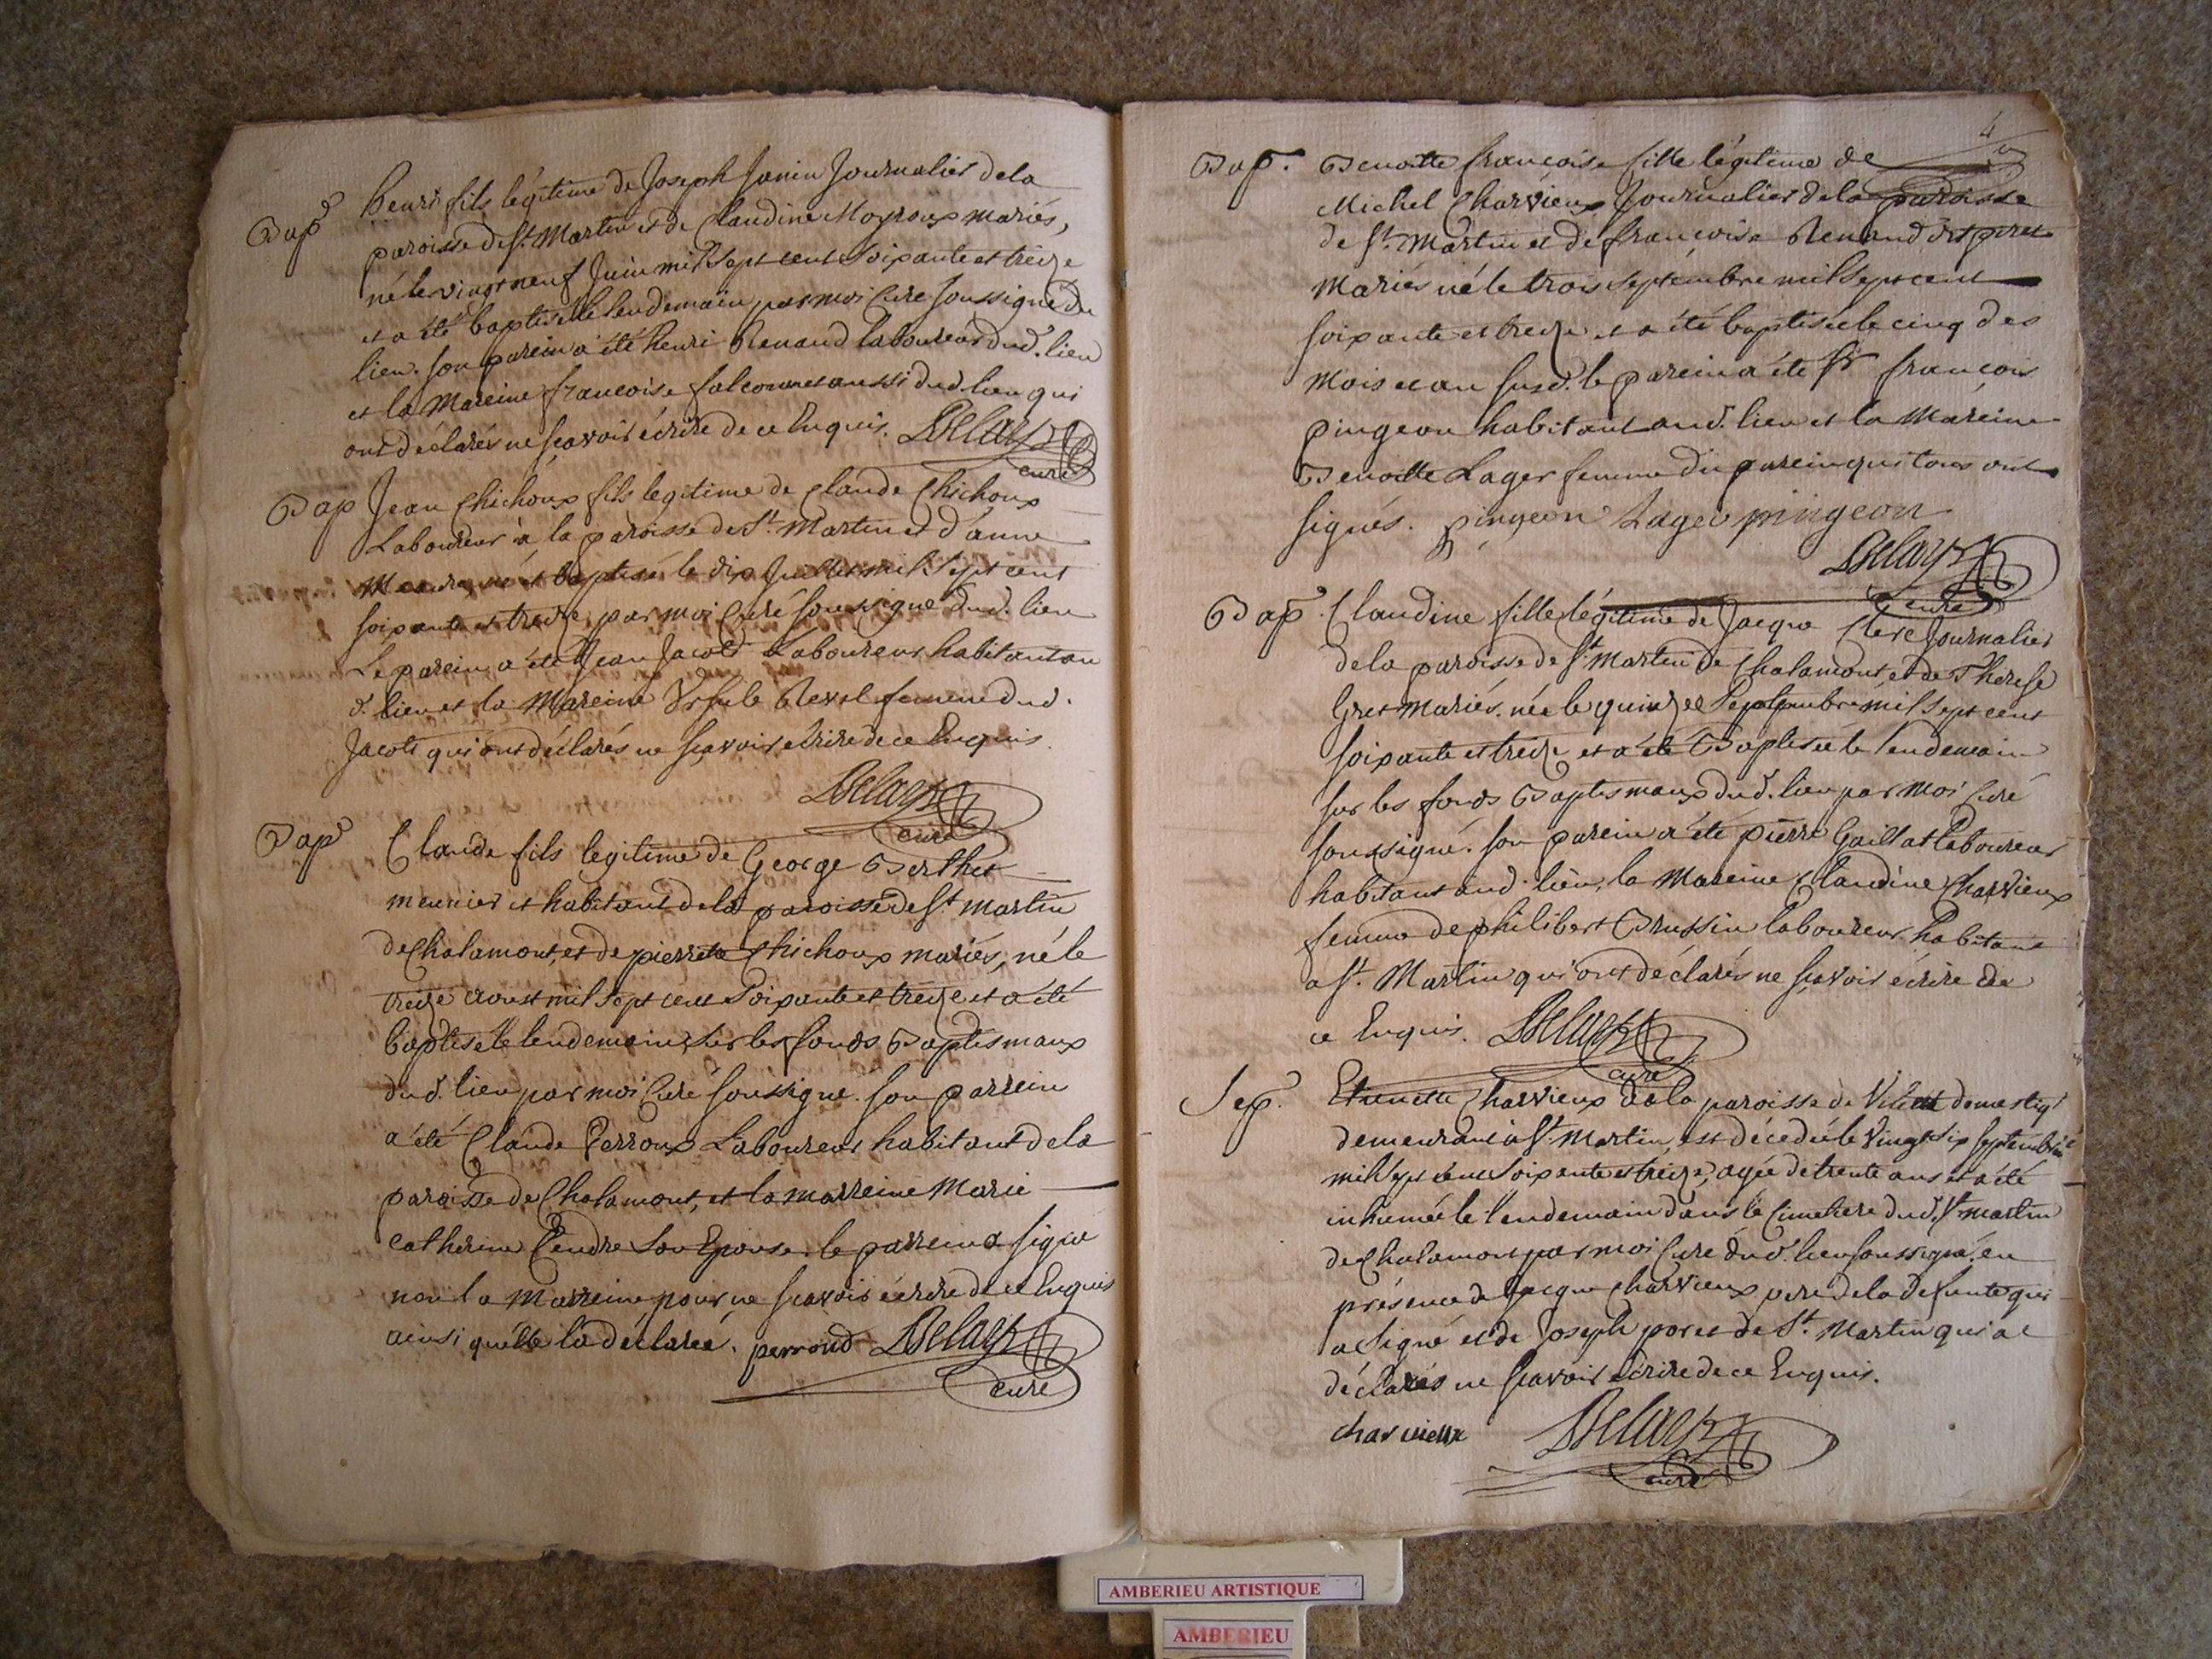 Bap Henri fils légitime de Joseph Janin Journalier de la
paroisse de St. Martin et de Claudine Moyroux mariés,
né le vingt neuf Juin mil Sept cent Soixante et treize
et a été baptisé le lendemain par moi Curé Soussigné du
lien. Son parein a été henri Renaud laboureur dud. lieu
et la Mareine francoise falconnet aussi dud. lieu qui
ont déclarés ne scavoir écrire de ce Enquis. Delarx
curé
Bap Jean Chichoux fils legitime de Claude Chichoux
Laboureur à la paroisse de St. Martin et d'anne
né et baptisé le dix Juillet mil Sept cent
soixante et treize par moi Curé soussigné dud. lieu
Le parein a été Jean Jacob Laboureur habitant au
d. lieu et la Mareine Ursule Revel femme dud.
Jacob qui ont déclarés ne scavoir écrire de ce Enquis.
Delarx
curé
Bap Claude fils legitime de George Berthet
meunier et habitant de la paroisse de St. martin
de Chalamont, et de pierrette Chichoux mariés, né le
treize aoust mil Sept cent Soixante et treize et a été
baptisé le lendemain sur les fonds Baptismaux
dud. lieu par moi Curé soussigné. son parrein
a été Claude Perroux Laboureur habitant de la
paroisse de Chalamont, et la marreine Marie
catherine Son Epouse. le parrein a signé
non la Marreine pour ne scavoir écrire de ce Enquis
ainsi quelle la déclaréé. perroud Delarx
curé
4
Bap. Benoitte francoise fille légitime de
Michel Charvieux Journalier de la paroisse
de St. Martin et de francoise Renaud
Mariés né le trois Septembre mil Sept cent
soixante et treize et a été baptisée le cinq des
Mois et an susd. le parein a été Sr francois
pingeon habitant aud. lieu et la Mareine
Benoitte Lager femme du parein qui tous ont
signés. pingeon Lager pingeon
Delarx
curé
Bap. Claudine fille légitime de Jacque Clerc Journalier
de la paroisse de St. Martin de Chalamont et de Therese
Gret Mariés. née le quinze Septembre mil Sept cent
soixante et treize et a été Baptisée le lendemain
sur les fonds Baptismaux dud. lieu par Moi Curé
soussigné. son parein a été pierre Gaillat laboureur
habitant aud. lieu, la Mareine Claudine Charvieux
femme de philibert Brussin laboureur habitant
a St. Martin qui ont déclarés ne scavoir écrire de
ce Enquis. Delarx
curé
Sep. Etiennette Charvieux de la paroisse de Vilette domestiq.
demeurant à St. Martin, est décedée le Vingt Six Septembre
mil Sept cent Soixante et treize, agée de trente ans et a été
inhumée le lendemain dans le Cimetiere dud. St. martin
de Chalamont par moi Curé dud. lieu soussigné, en
présence de Jacque Charvieux pere de la Defunte qui
a Signé et de Joseph poret de St. Martin qui a
déclarés ne scavoir écrire de ce Enquis.
charvieux Delarx
curé
AMBERIEU ARTISTIQUE
AMBERIEU